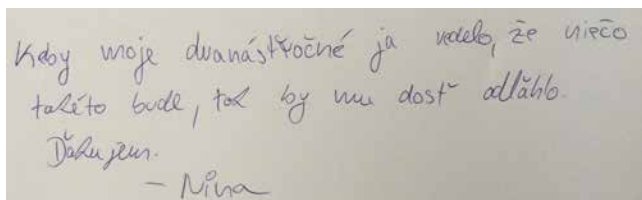 Keby moje dvanásťročné ja vedelo, že niečo
takéto bude, tak by mu dosť odľahlo.
Ďakujem.
- Nina